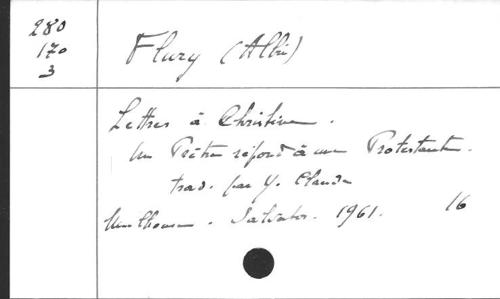 280
170
3
Flury (Albi)
Lettres à Christine.
Un Prêtre répond à une Protestante.
trad. par Y. Claude
Mulhouse. Salvator. 1961. 16